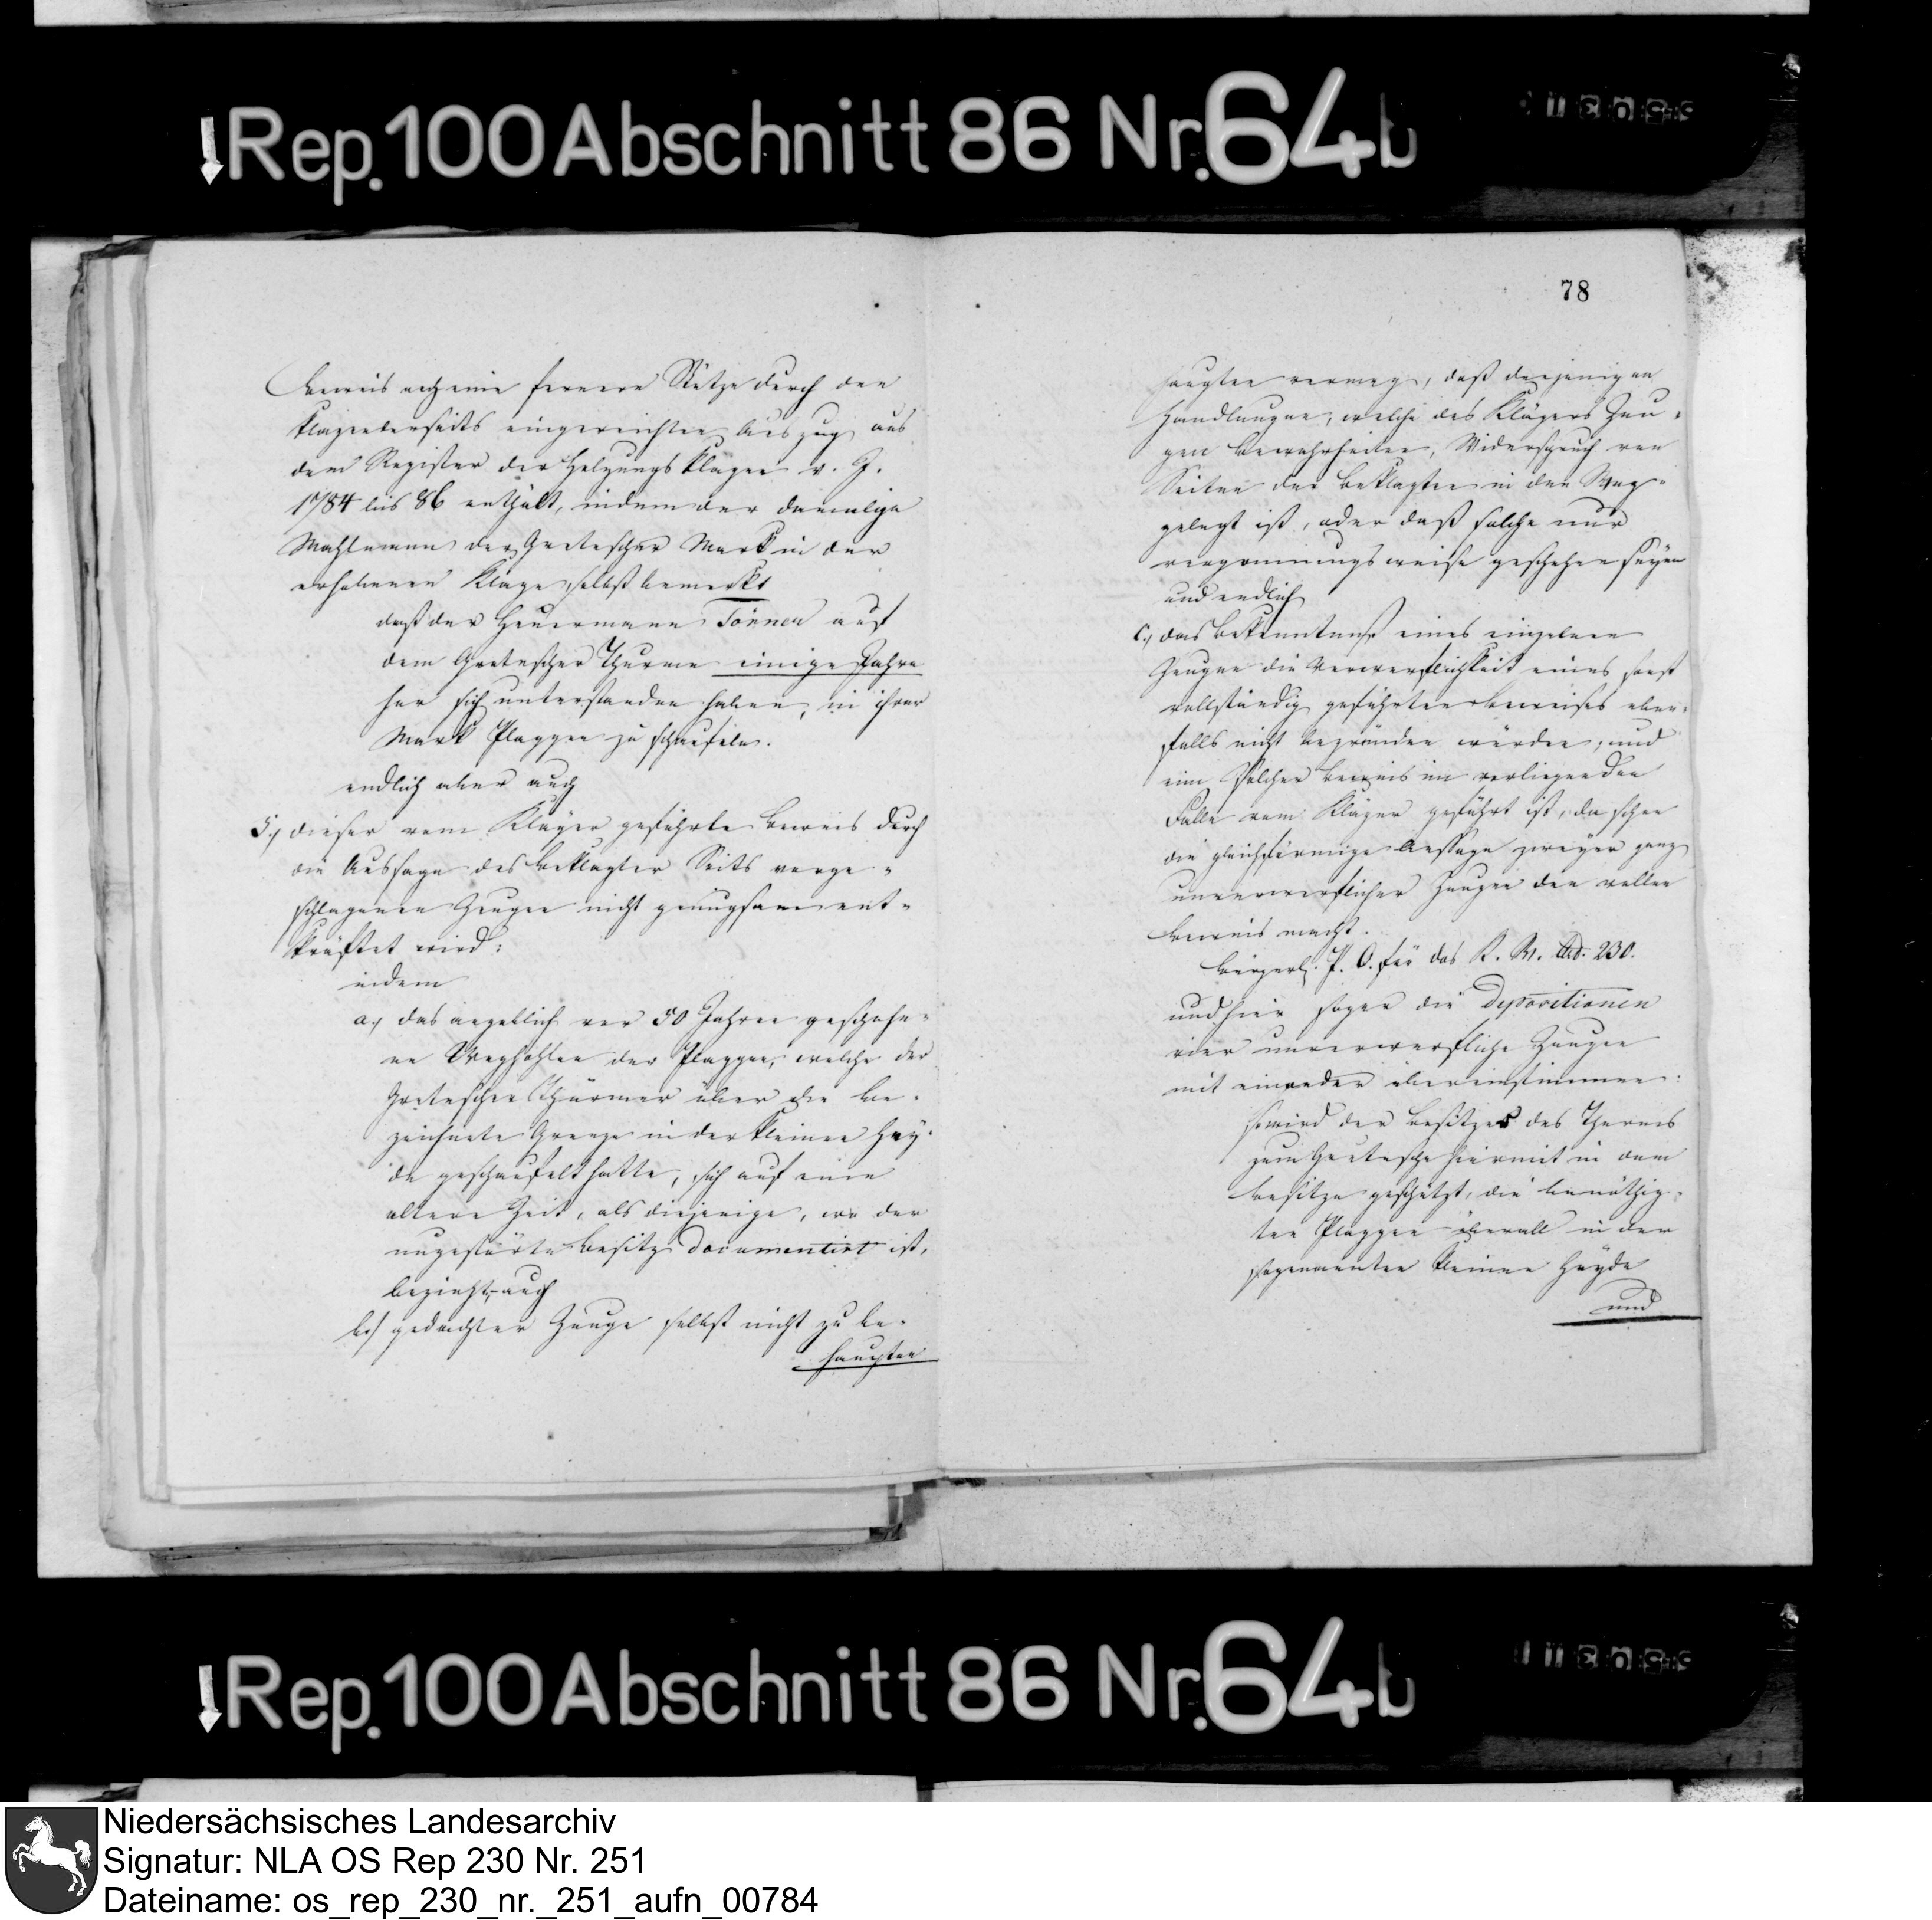 ↓Rep.100 Abschnitt 86 Nr.64b
Beweis noch eine fernere Stütze durch den
klagenderseits eingereichten Auszug aus
dem Register der Holzungsklagen v. J.
1784 bis 86 enthält, indem der damalige
Mahlmann der Gretescher Mark in der
erhobenen Klage selbst bemerkt
daß der Heuermann Tönnen auf
dem Gretescher Thurme einige Jahre
her sich unterstanden haben, in ihrer
Mark Plaggen zu schaufeln.
endlich aber auch
5., dieser vom Kläger geführte Beweis durch
die Aussage des Beklagter Seits vorge-
schlagenen Zeugen nicht genugsam ent-
kräftet wird:
indem
a., das angeblich vor 50 Jahren geschehe-
ne Weghohlen der Plaggen, welche der
Gretescher Thürmer über die be-
zeichnete Grenze in der kleinen Hey-
de geschaufelt hatte, sich auf eine
ältere Zeit, als diejenige, wo der
ungestörte Besitz documentirt ist,
bezieht, auch
b.) gedachter Zeuge selbst nicht zu be-
haupten
78
haupten vermag, daß diejenigen
Handlungen, welche des Klägers Zeu-
gen bewahrheiten, Widerspruch von
Seiten der Beklagten in den Weg
gelegt ist, oder daß solche nur
vergönnungsweise geschehen seyen
und endlich
c., das Bekenntniß eines einzelnen
Zeugen die Verwerflichkeit eines sonst
vollständig geführten Beweises eben-
falls nicht begründen würde, und
ein solcher Beweis im vorliegenden
Falle vom Kläger geführt ist, da schon
die gleichförmige Aussage zweyer ganz
unverwerflicher Zeugen den vollen
Beweis macht.
bürgerl. P. O. für das K. W. Art. 230.
und hier sogar die Depositionen
vier unverwerfliche Zeugen
mit einander übereinstimmen:
so wird der Besitzer des Thurms
zum Gretesche hiermit in dem
Besitze geschützt, die benöthig-
ten Plaggen überall in der
sogenannten kleinen Heyde
und
↓Rep.100 Abschnitt 86 Nr.64b
Niedersächsisches Landesarchiv
Signatur: NLA OS Rep 230 Nr. 251
Dateiname: os_rep_230_nr._251_aufn_00784